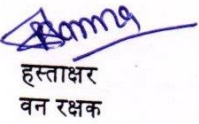 हस्ताक्षर
वन रक्षक